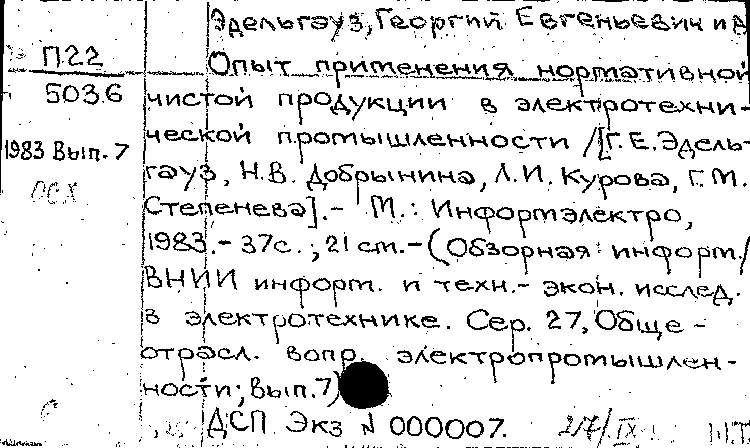 Эдельгауз, Георгий Евгеньевич и др
П22
Опыт применения нормативной
5036
чистой продукции в электротехни-
ческой промышленности /[Г.Е.Эдель-
1983 Вып.7
гауз, Н.В. Добрынина, Л.И. Курова, Г.М.
ОСХ
Степенева].- М.: Информэлектро,
1983.- 37с.; 21 см.-(Обзорная информ./
ВНИИ информ. и техн.- экон. исслед.
в электротехнике. Сер. 27, Обще-
отрасл. вопр. электропромышлен-
ности; Вып.7)
ДСП Экз N 000007.